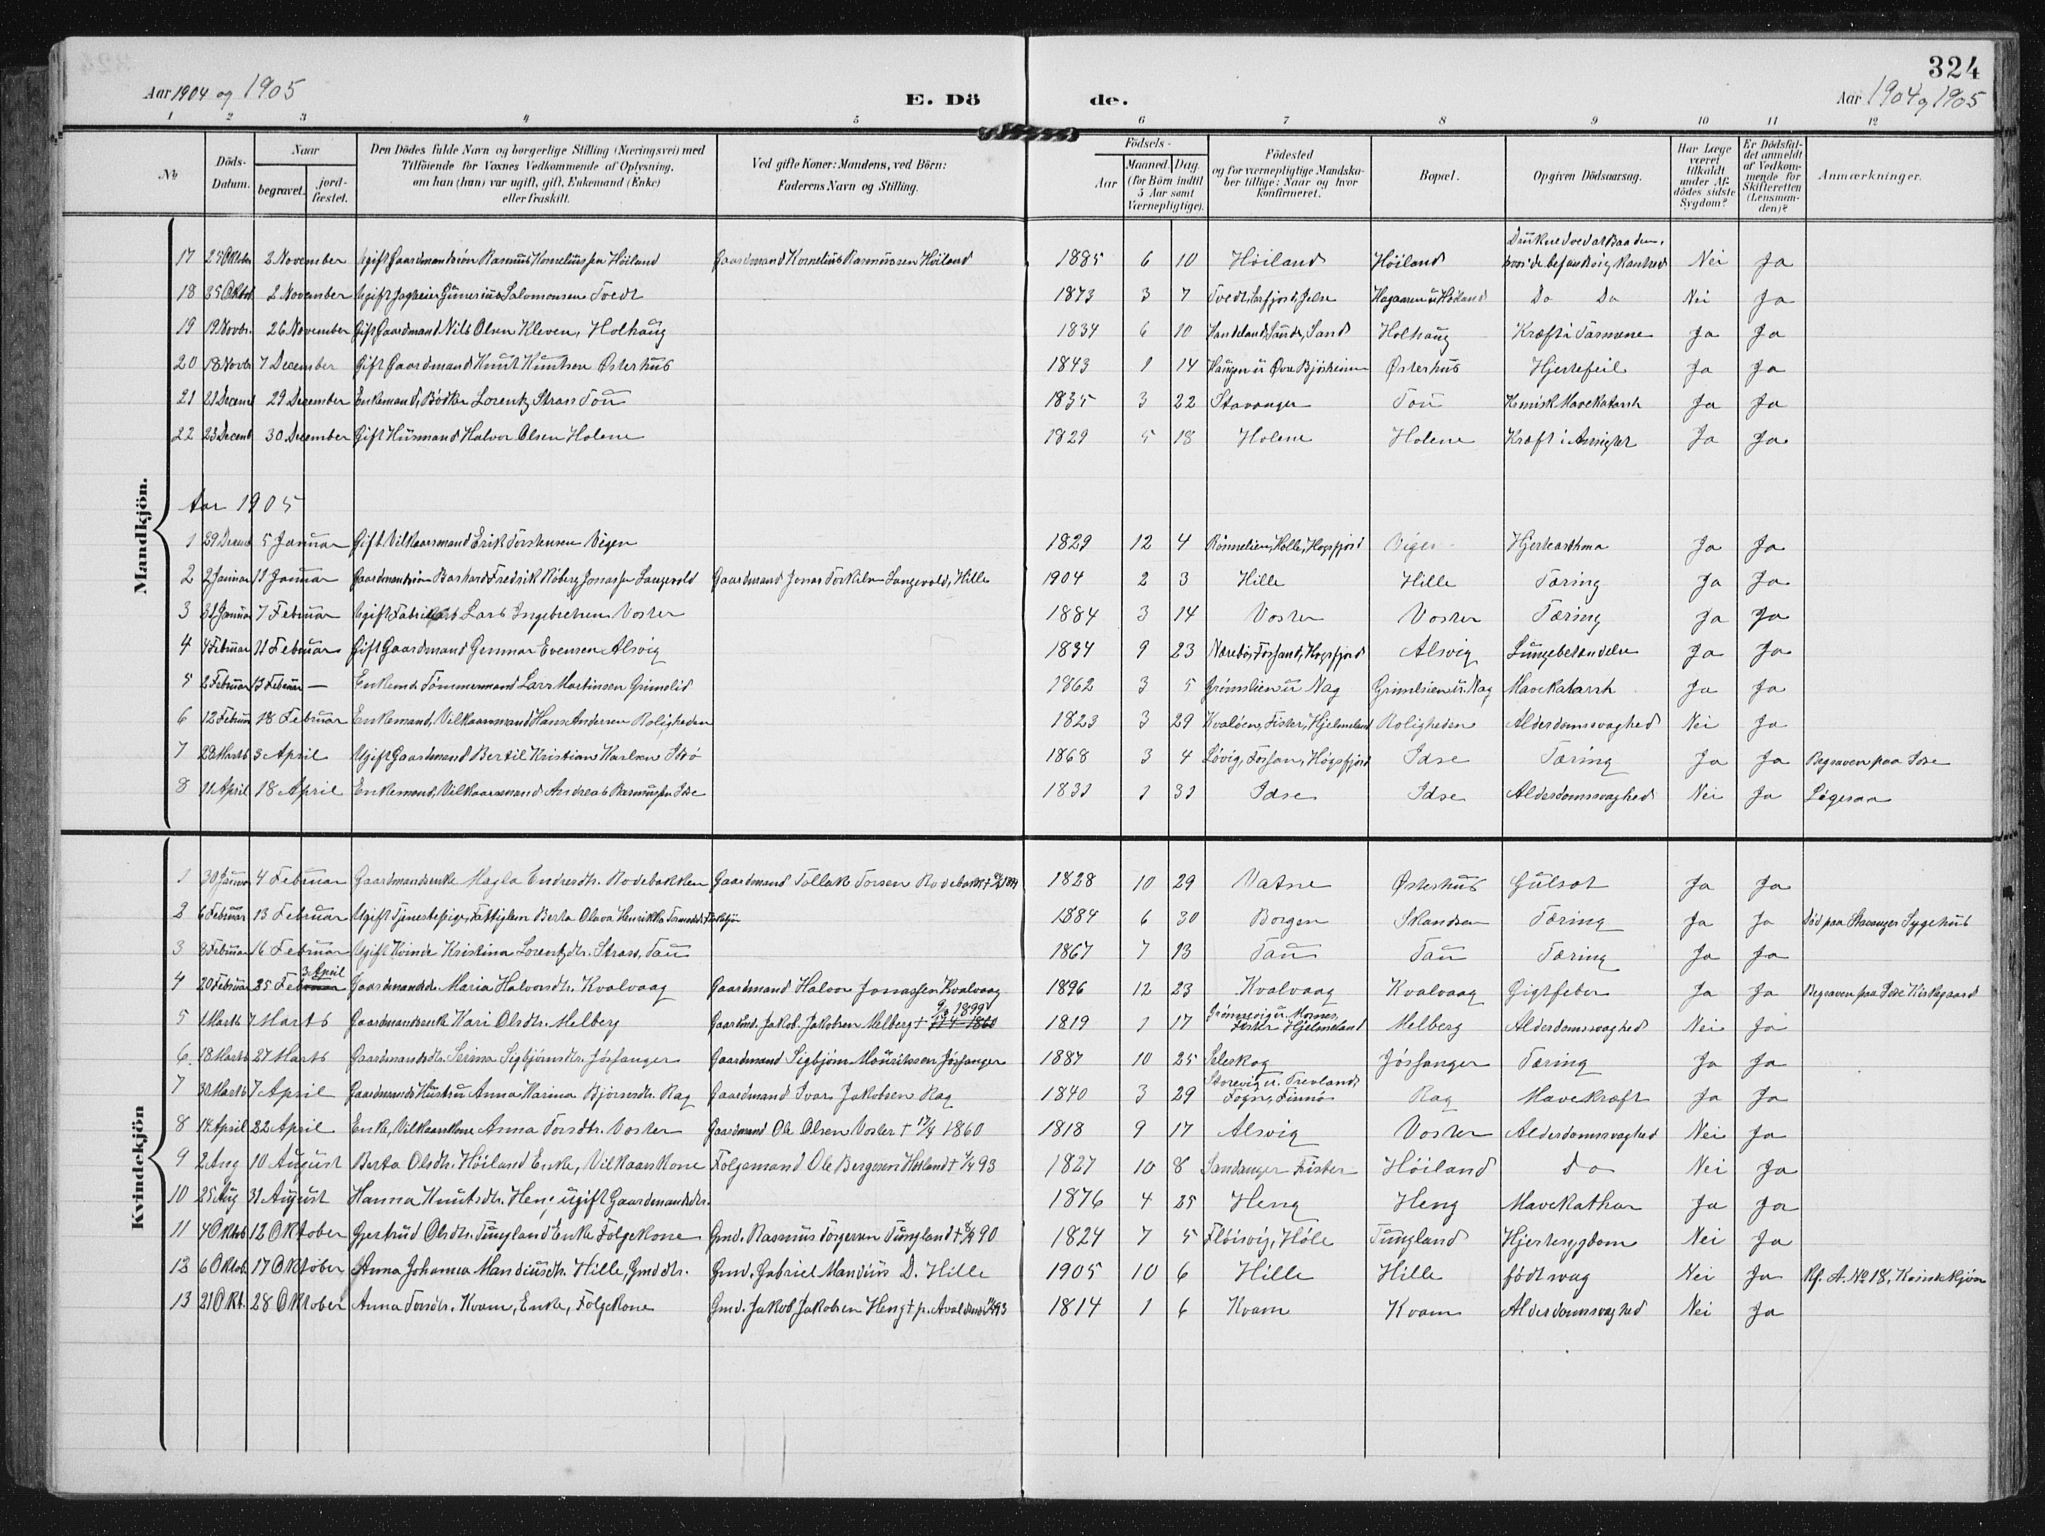 324
Aar 1904 og 1905
E. Dö de.
Aar 1904 og 1905
1 2 3 4 5 6 7 8 9 10 11 12
No
Döds-Datum.
Naar begravet. jordfæstet.
Den Dödes fulde Navn og borgerlige Stilling (Næringsvei) med Tilföiende for Voxnes Vedkommende af Oplysning, om han (hun) var ugift, gift, Enkemand (Enke) eller fraskilt.
Ved gifte Koner: Mandens, ved Börn: Faderens Navn og Stilling.
Födsels- Aar Maaned. Dag. (for Börn indtil 5 Aar samt Værnepligtige).
Födested og for værnepligtige Mandskaber tillige: Naar og hvor konfirmeret.
Bopæl.
Opgiven Dödsaarsag.
Har Læge været tilkaldt under Afdödes sidste Sygdom?
Er Dödsfaldet anmeldt af Vedkommende for Skifteretten (Lensmanden)?
Anmærkninger.
Mandkjön.
17 25 Oktbr 2 November Ugift Gaardmandssön Rasmus Kornelius sen Höiland Gaardmand Kornelius Rasmussen Höiland 1885 6 10 Höiland Höiland Druknede ved at Baaden, hvori de befandt sig kantrede Nei Ja
18 25 Oktbr 2 November Ugift Jagteier Gunerius Salomonsen Tvedt 1873 3 7 Tvedt, Jelse Hagaaren u. Höiland Do Do Nei Ja
19 19 Novbr. 26 November Gift Gaardmand Nils Olsen Kleven, Holhaug 1834 6 10 Sandeland, Saude, Sand Holhaug Kræft i Tarmene Ja Ja
20 18 Novbr 7 December Gift Gaardmand Knut Knutsen Østerhus 1843 1 14 Haugen u. Øvre Bjørheim Østerhus Hjertefeil Ja Ja
21 21 Decemb 29 December Enkemand, Bødker Lorentz Strass Tou 1835 3 22 Stavanger Tou Kronisk Mavekatarrh Ja Ja
22 23 Decemb 30 December Gift Husmand Halvor Olsen Holene 1829 5 18 Holene Holene Kræft i Ansigtet Ja Ja
Aar 1905
1 29 Decemb 5 Januar Gift Vilkaarsmand Erik Torstensen Vigen 1829 12 4 Rönnelien, Holle, Høgsfjord Vigen Hjerteasthma Ja Ja
2 2 Januar 11 Januar Gaardmandssön Barhard Fredrik Roberg Jonassen Langevold Gaardmand Jonas Torkilsen Langevold, Hille 1904 2 3 Hille Hille Tæring Ja Ja
3 31 Januar 7 Februar Ugift Lars Ingebretsen Voster 1884 3 14 Voster Voster Tæring Ja Ja
4 4 Februar 11 Februar Gift Gaardmand Gunnar Evensen Alsvig 1834 9 23 Nærebø, Fossand, Høgsfjord Alsvig Lungebetændelse Ja Ja
5 2 Februar 13 Februar — Enkem. Tömmermand Lars Martinsen Grimslid 1862 3 5 Grimslien u. Nag Grimslien u. Nag Mavekatarrh Ja Ja
6 12 Februar 18 Februar Enkemand, Vilkaarsmand Hans Andersen Roligheden 1823 3 29 Kvalöen, Fister, Hjelmeland Roligheden Alderdomssvaghed Nei Ja
7 29 Marts 3 April Ugift Gaardmand Bertil Kristian Karlsen Idsø 1868 3 4 Løvig, Fossan, Høgsfjord Idse Tæring Ja Ja Begraven paa Idse
8 11 April 18 April Enkemand, Vilkaarsmand Andreas Rasmussen Idse 1831 1 31 Idse Idse Alderdomssvaghed Nei Ja Ligesaa
Kvindekjön
1 30 Januar 4 Februar Gaardmandsenke Magla Endresdtr. Rodebakken Gaardmand Tollak Torsen Rodebakk 1828 10 29 Vatne Østerhus Gulsot Ja Ja
2 6 Februar 13 Februar Ugift Tjenestepige, Fattiglem Berta Olava Henrikka 1884 6 30 Borgen Skandsen Tæring Ja Ja Död paa Stavanger Sygehus
3 8 Februar 16 Februar Ugift Kvinde Kristina Lorentzdtr. Strass, Tau 1867 7 13 Tau Tau Tæring Ja Ja
4 20 Februar 25 Februar 3 April Gaardmandsdtr. Maria Halvorsdtr. Kvalvaag Gaardmand Halvor Jonassen Kvalvaag 1896 12 23 Kvalvaag Kvalvaag Gigtfeber Ja Ja Begraven paa Idse Kirkegaard
5 1 Marts 7 Marts Gaardmandsenke Kari Olsdtr. Melberg Gaardmd. Jakob Jakobsen Melberg † 1899 1819 1 17 Grönnevig u. Mosnes, Fister Hjelmeland Melberg Alderdomssvaghed Nei Ja
6. 18 Marts 27 Marts Gaardmandsdtr. Serina Sigbjörnsdtr. Jösfanger Gaardmand Sigbjörn Mouritssen Jösfanger 1887 10 25 Seleskog Jösfanger Tæring Ja Ja
7 30 Marts 7 April Gaardmands Hustru Anna Marina Bjornsdtr. Rag Gaardmand Ivar Jakobsen Rag 1840 3 29 Storevig u. Trevland, Fogn, Finnø Rag Mavekræft Ja Ja
8 14 April 22 April Enke, Vilkaarskone Anna Torsdtr. Voster Gaardmand Ole Olsen Voster † 17/4 1860 1818 9 17 Alsvig Voster Alderdomssvaghed Nei Ja
9 2 Aug 10 August Berta Olsdtr. Höiland Enke, Vilkaarskone Folgemand Ole Bergesen Höiland † 93 1827 10 8 Sandanger Fister Höiland do Nei Ja
10 25 Aug 31 August Hanna Knutsdtr. Heng ugift Gaardmandsdtr. 1876 4 25 Heng Heng Mavekathar Ja Ja
11 4 Oktob 12 Oktober Gjertrud Olsdtr. Tungland Enke Folgekone Gmd. Rasmus Torgersen Tungland † 90 1824 7 5 Fløisvig, Høle Tungland Hjertesygdom Nei Ja
12 6 Oktob 17 Oktober Anna Johanna Mandiusdtr. Hille, Gmd dtr. Gmd. Gabriel Mandius D. Hille 1905 10 6 Hille Hille født svag Nei Ja Kf. A. No 18, Kvindekjön
13 21 Okt. 28 Oktober Anna Torsdtr. Kvam, Enke, Folgekone Gmd. Jakob Jakobsen Heng † p. 93 1814 1 6 Kvam Kvam Alderdomssvaghed Nei Ja